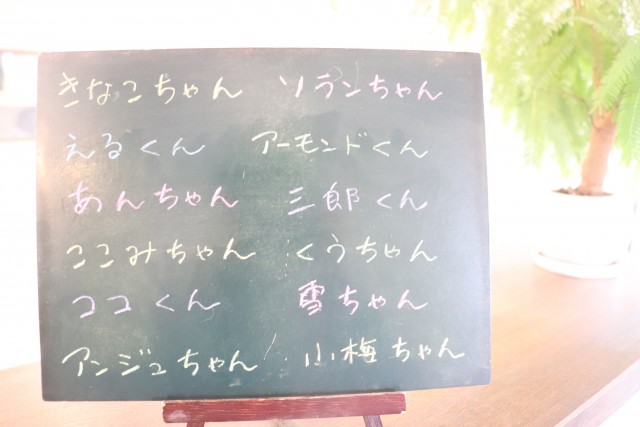 きなこちゃん ソランちゃん
えるくん アーモンドくん
あんちゃん 三郎くん
ここみちゃん くうちゃん
ココくん 雪ちゃん
アンジュちゃん 小梅ちゃん